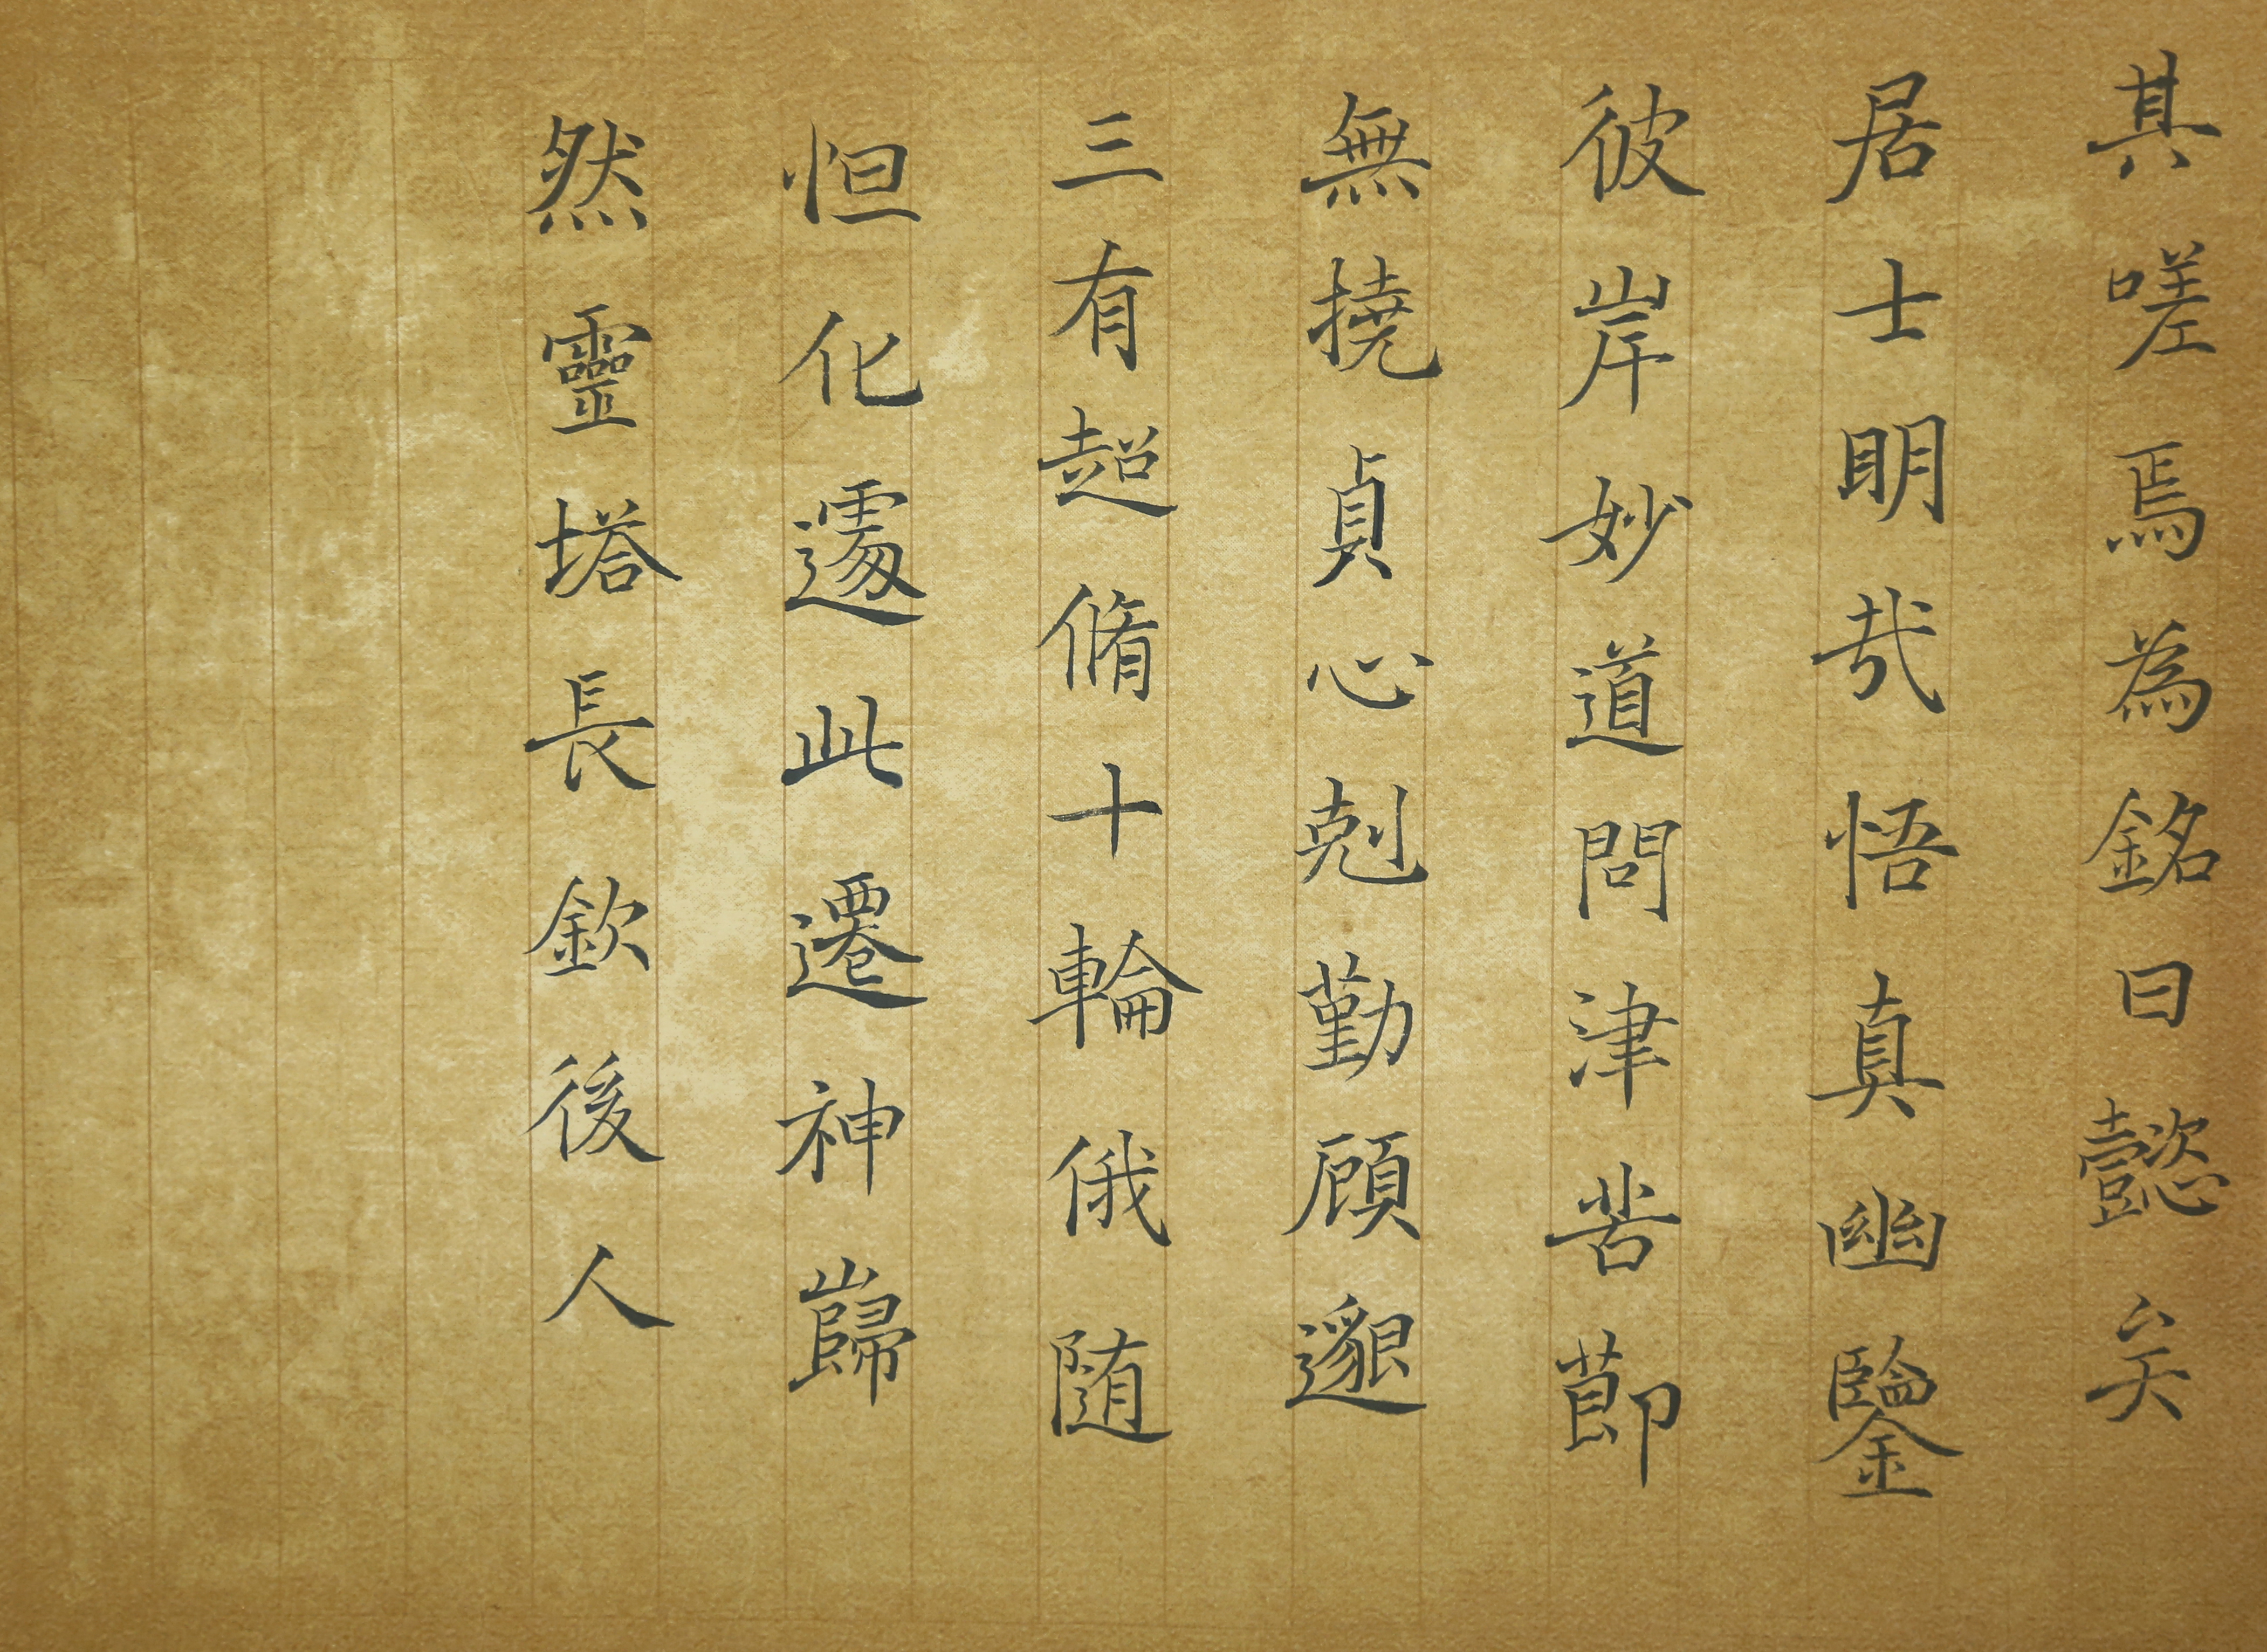 其嗟焉為銘曰懿矣
居士明哉悟真幽鑒
彼岸妙道問津苦節
無撓貞心剋勤顧邈
三有超脩十輪俄随
怛化遽此遷神巋
然靈塔長欽後人